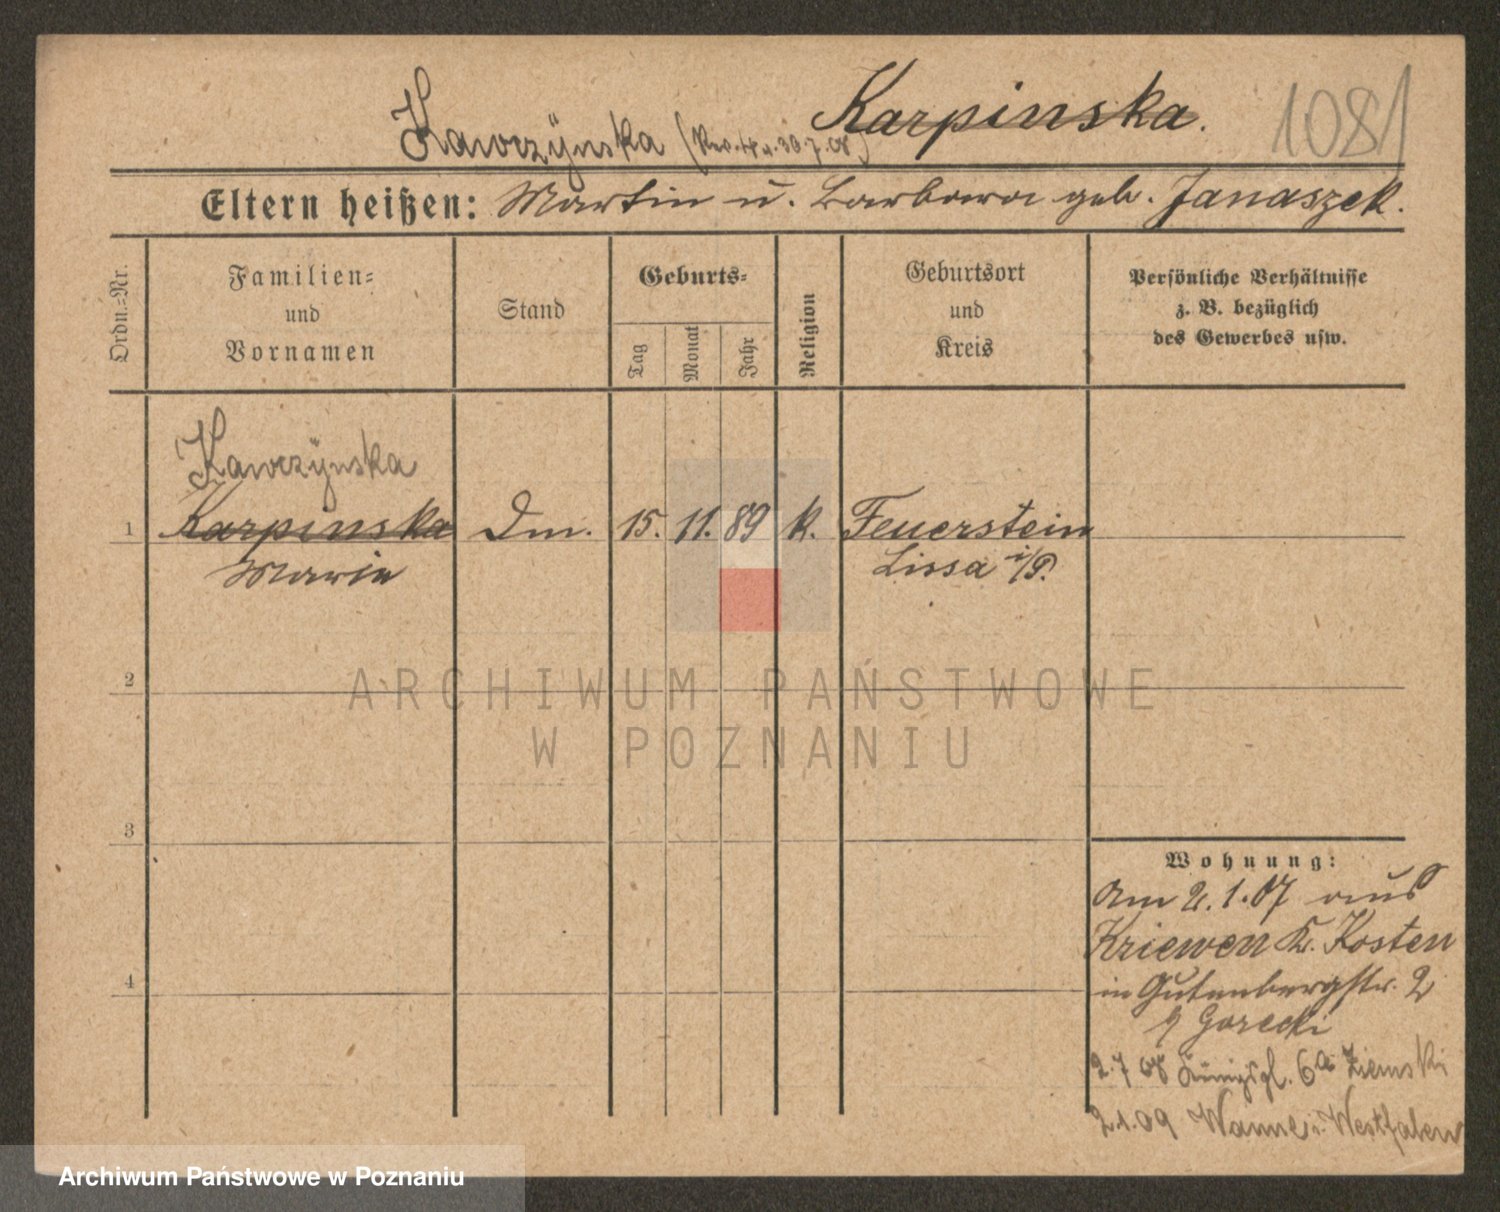 Karpinska. 1081
Kawczÿnska (Rev. 30.7.08)
Eltern heißen: Martin u. Barbara geb. Janaszek.
Ordn.=Nr.
Familien=
und
Vornamen
Stand
Geburts=
Tag
Monat
Jahr
Religion
Geburtsort
und
Kreis
Persönliche Verhältnisse
z. B. bezüglich
des Gewerbes usw.
Kawczÿnska
1 Karpinska Dm. 15. 11. 89 k. Feuerstein
Marie Lissa i/P.
2
3
4
Wohnung:
Am 2.1.07 aus
Kriewen Kr. Kosten
in Gutenbergstr. 2
b Gorecki
2.7 08 Königspl. 6a Ziemski
2.1.09 Wanne i. Westfalen
ARCHIWUM PAŃSTWOWE
W POZNANIU
Archiwum Państwowe w Poznaniu